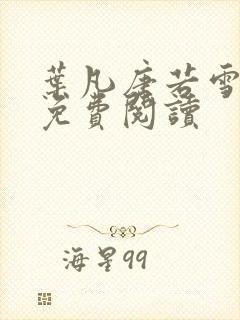 葉凡唐若雪
免費閱讀
海星99